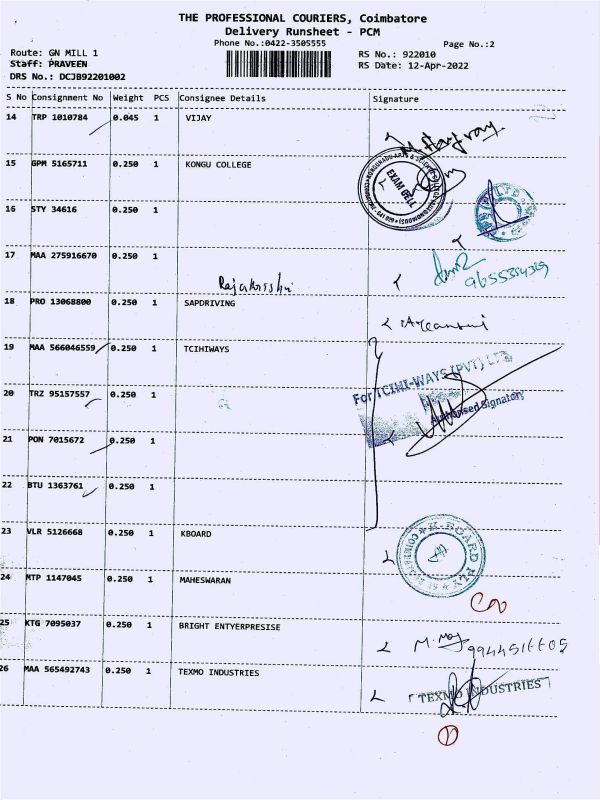 THE PROFESSIONAL COURIERS, Coimbatore
Delivery Runsheet - PCM
Phone No.:0422-3505555
Page No.:2
Route: GN MILL 1
RS No.: 922010
Staff: PRAVEEN
RS Date: 12-Apr-2022
DRS No.: DCJB92201002
S No Consignment No Weight PCS Consignee Details Signature
14 TRP 1010784 0.045 1 VIJAY
15 GPM 5165711 0.250 1 KONGU COLLEGE
EXAM CELL
16 STY 34616 0.250 1
17 MAA 275916670 0.250 1
18 PRO 13068800 0.250 1 SAPDRIVING
19 MAA 566046559 0.250 1 TCIHIWAYS
For TCIHI-WAYS (PVT) LTD
20 TRZ 95157557 0.250 1
Authorised Signatory
21 PON 7015672 0.250 1
22 BTU 1363761 0.250 1
23 VLR 5126668 0.250 1 KBOARD
K-BOARD
24 MTP 1147045 0.250 1 MAHESWARAN
25 KTG 7095037 0.250 1 BRIGHT ENTYERPRESISE
26 MAA 565492743 0.250 1 TEXMO INDUSTRIES
TEXMO INDUSTRIES